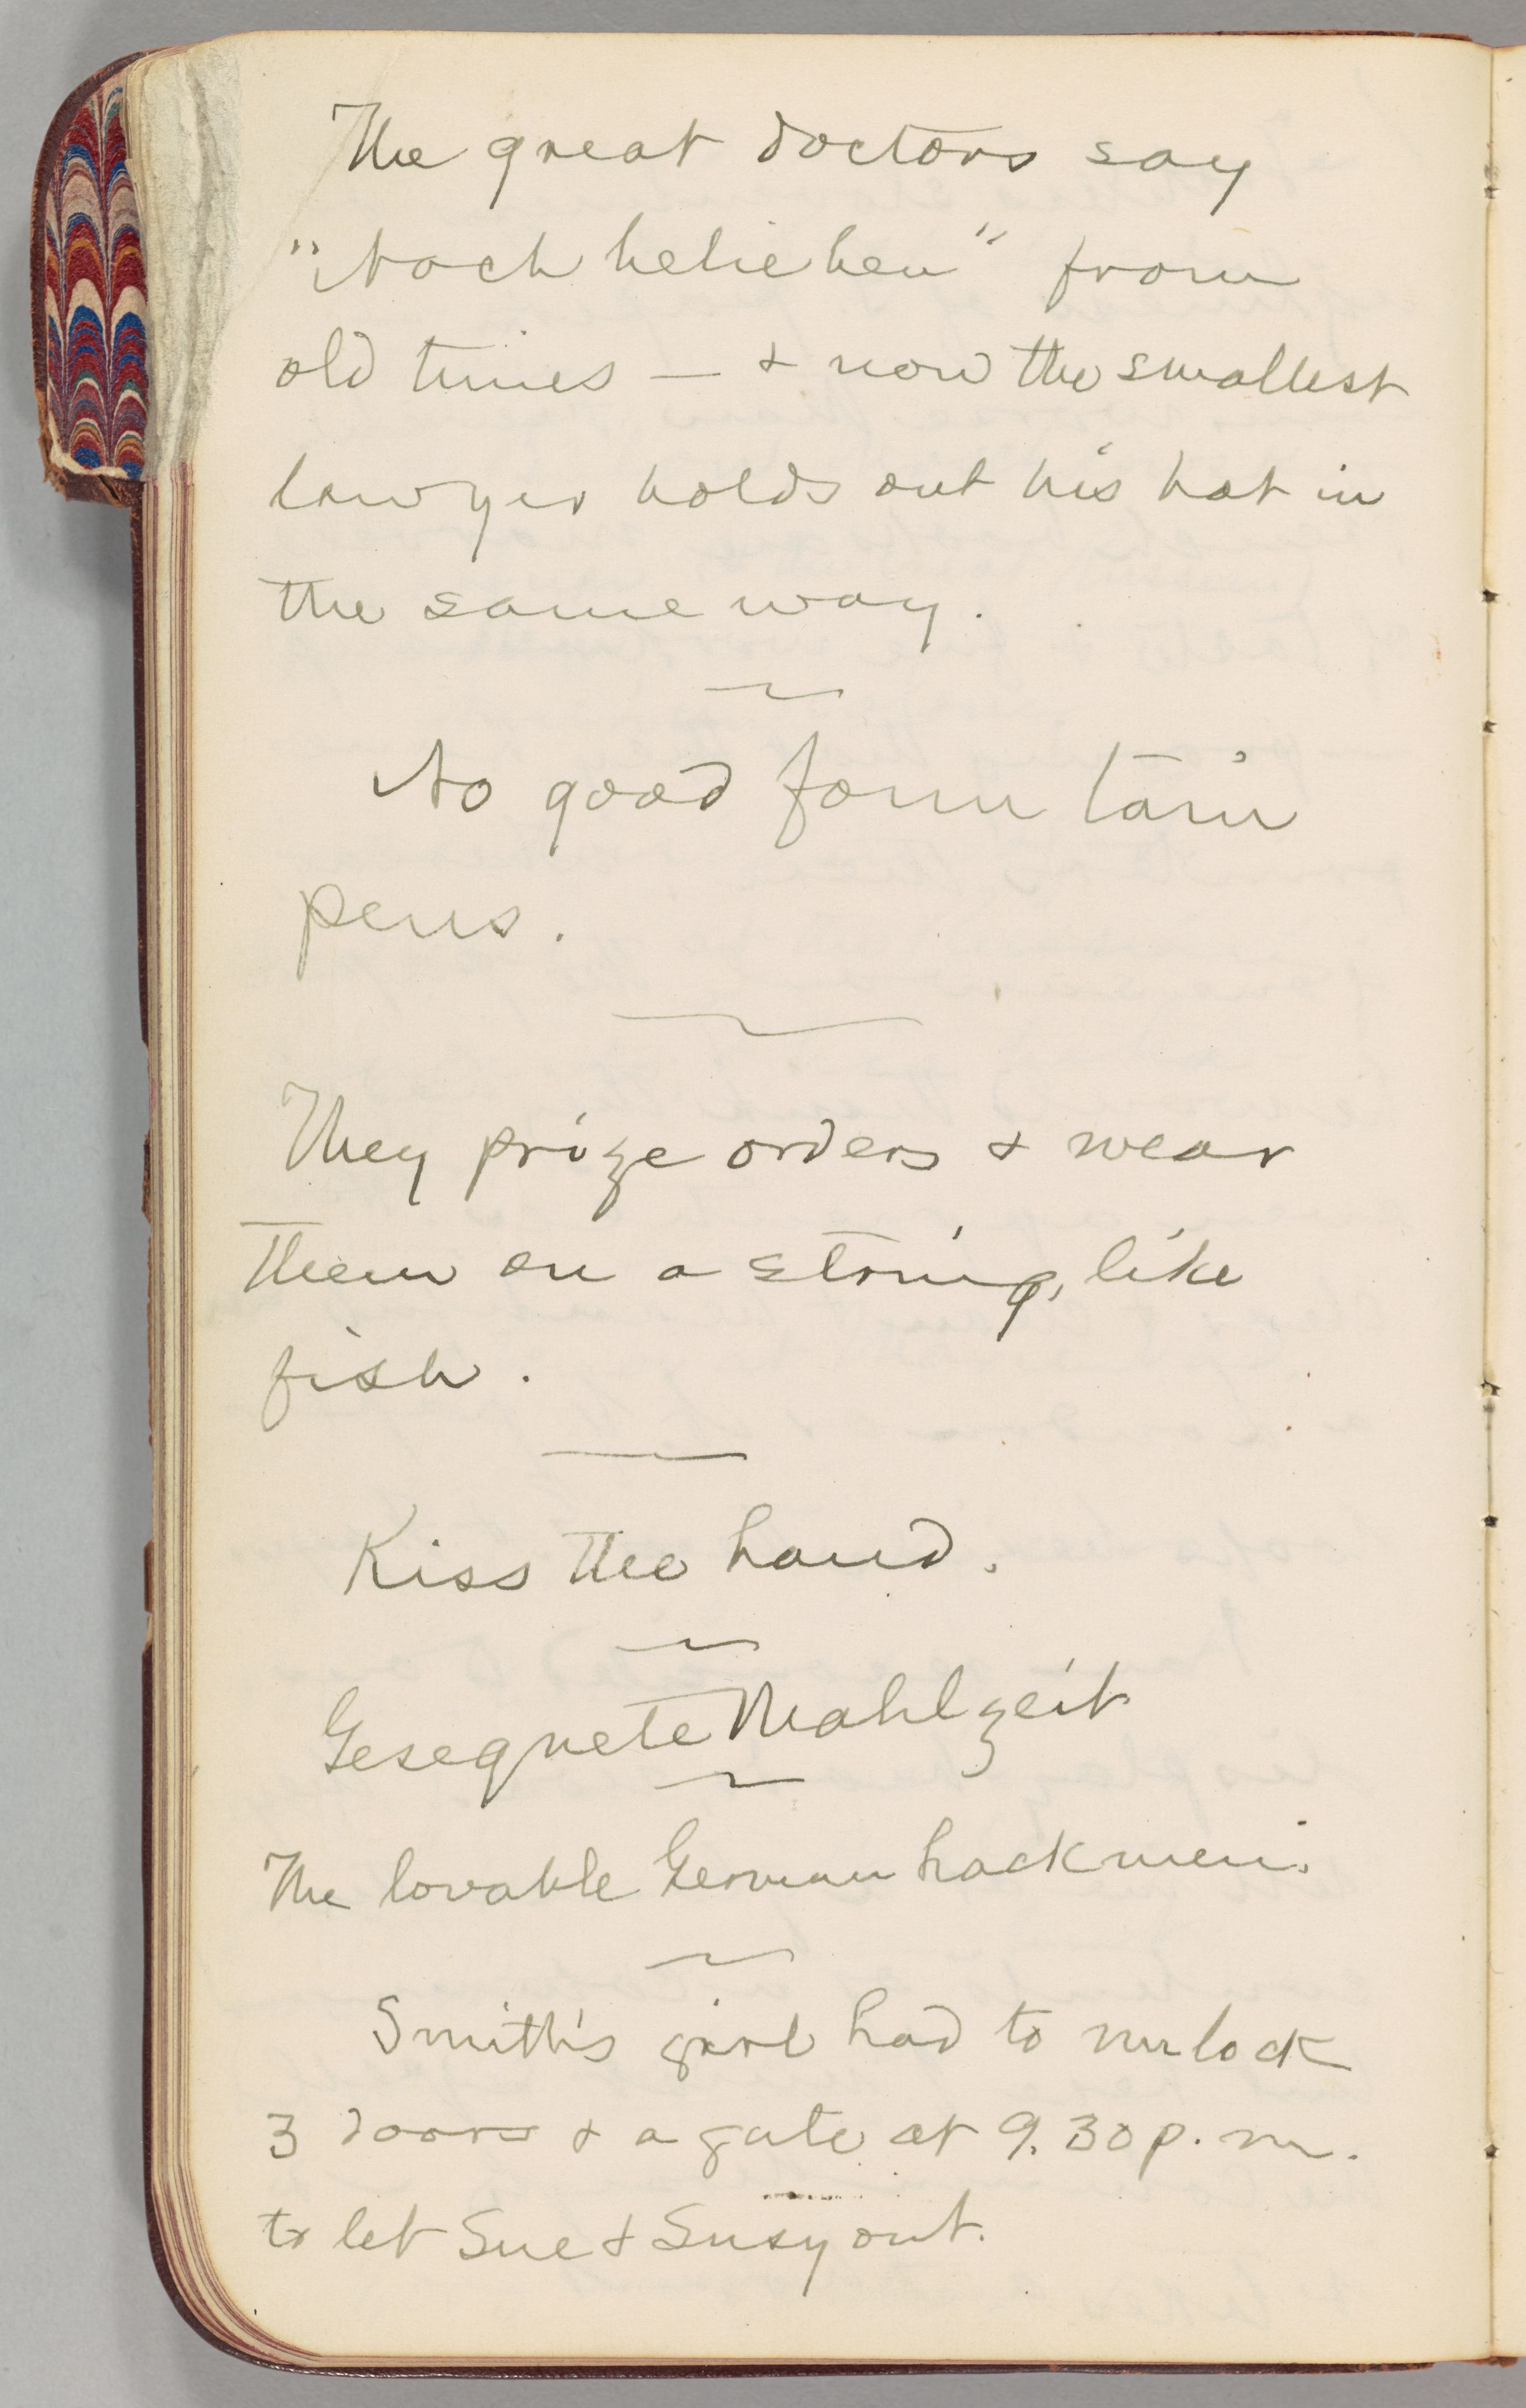 The great doctors say
"Nach belieben" from
old times — & now the smallest
lawyer holds out his hat in
the same way.
No good fountain
pens.
They prize orders & wear
them on a string, like
fish.
Kiss the hand.
Gesegnete Mahlzeit
The lovable German hackmen.
Smith's girl had to unlock
3 doors & a gate at 9.30 p.m.
to let Sue & Susy out.